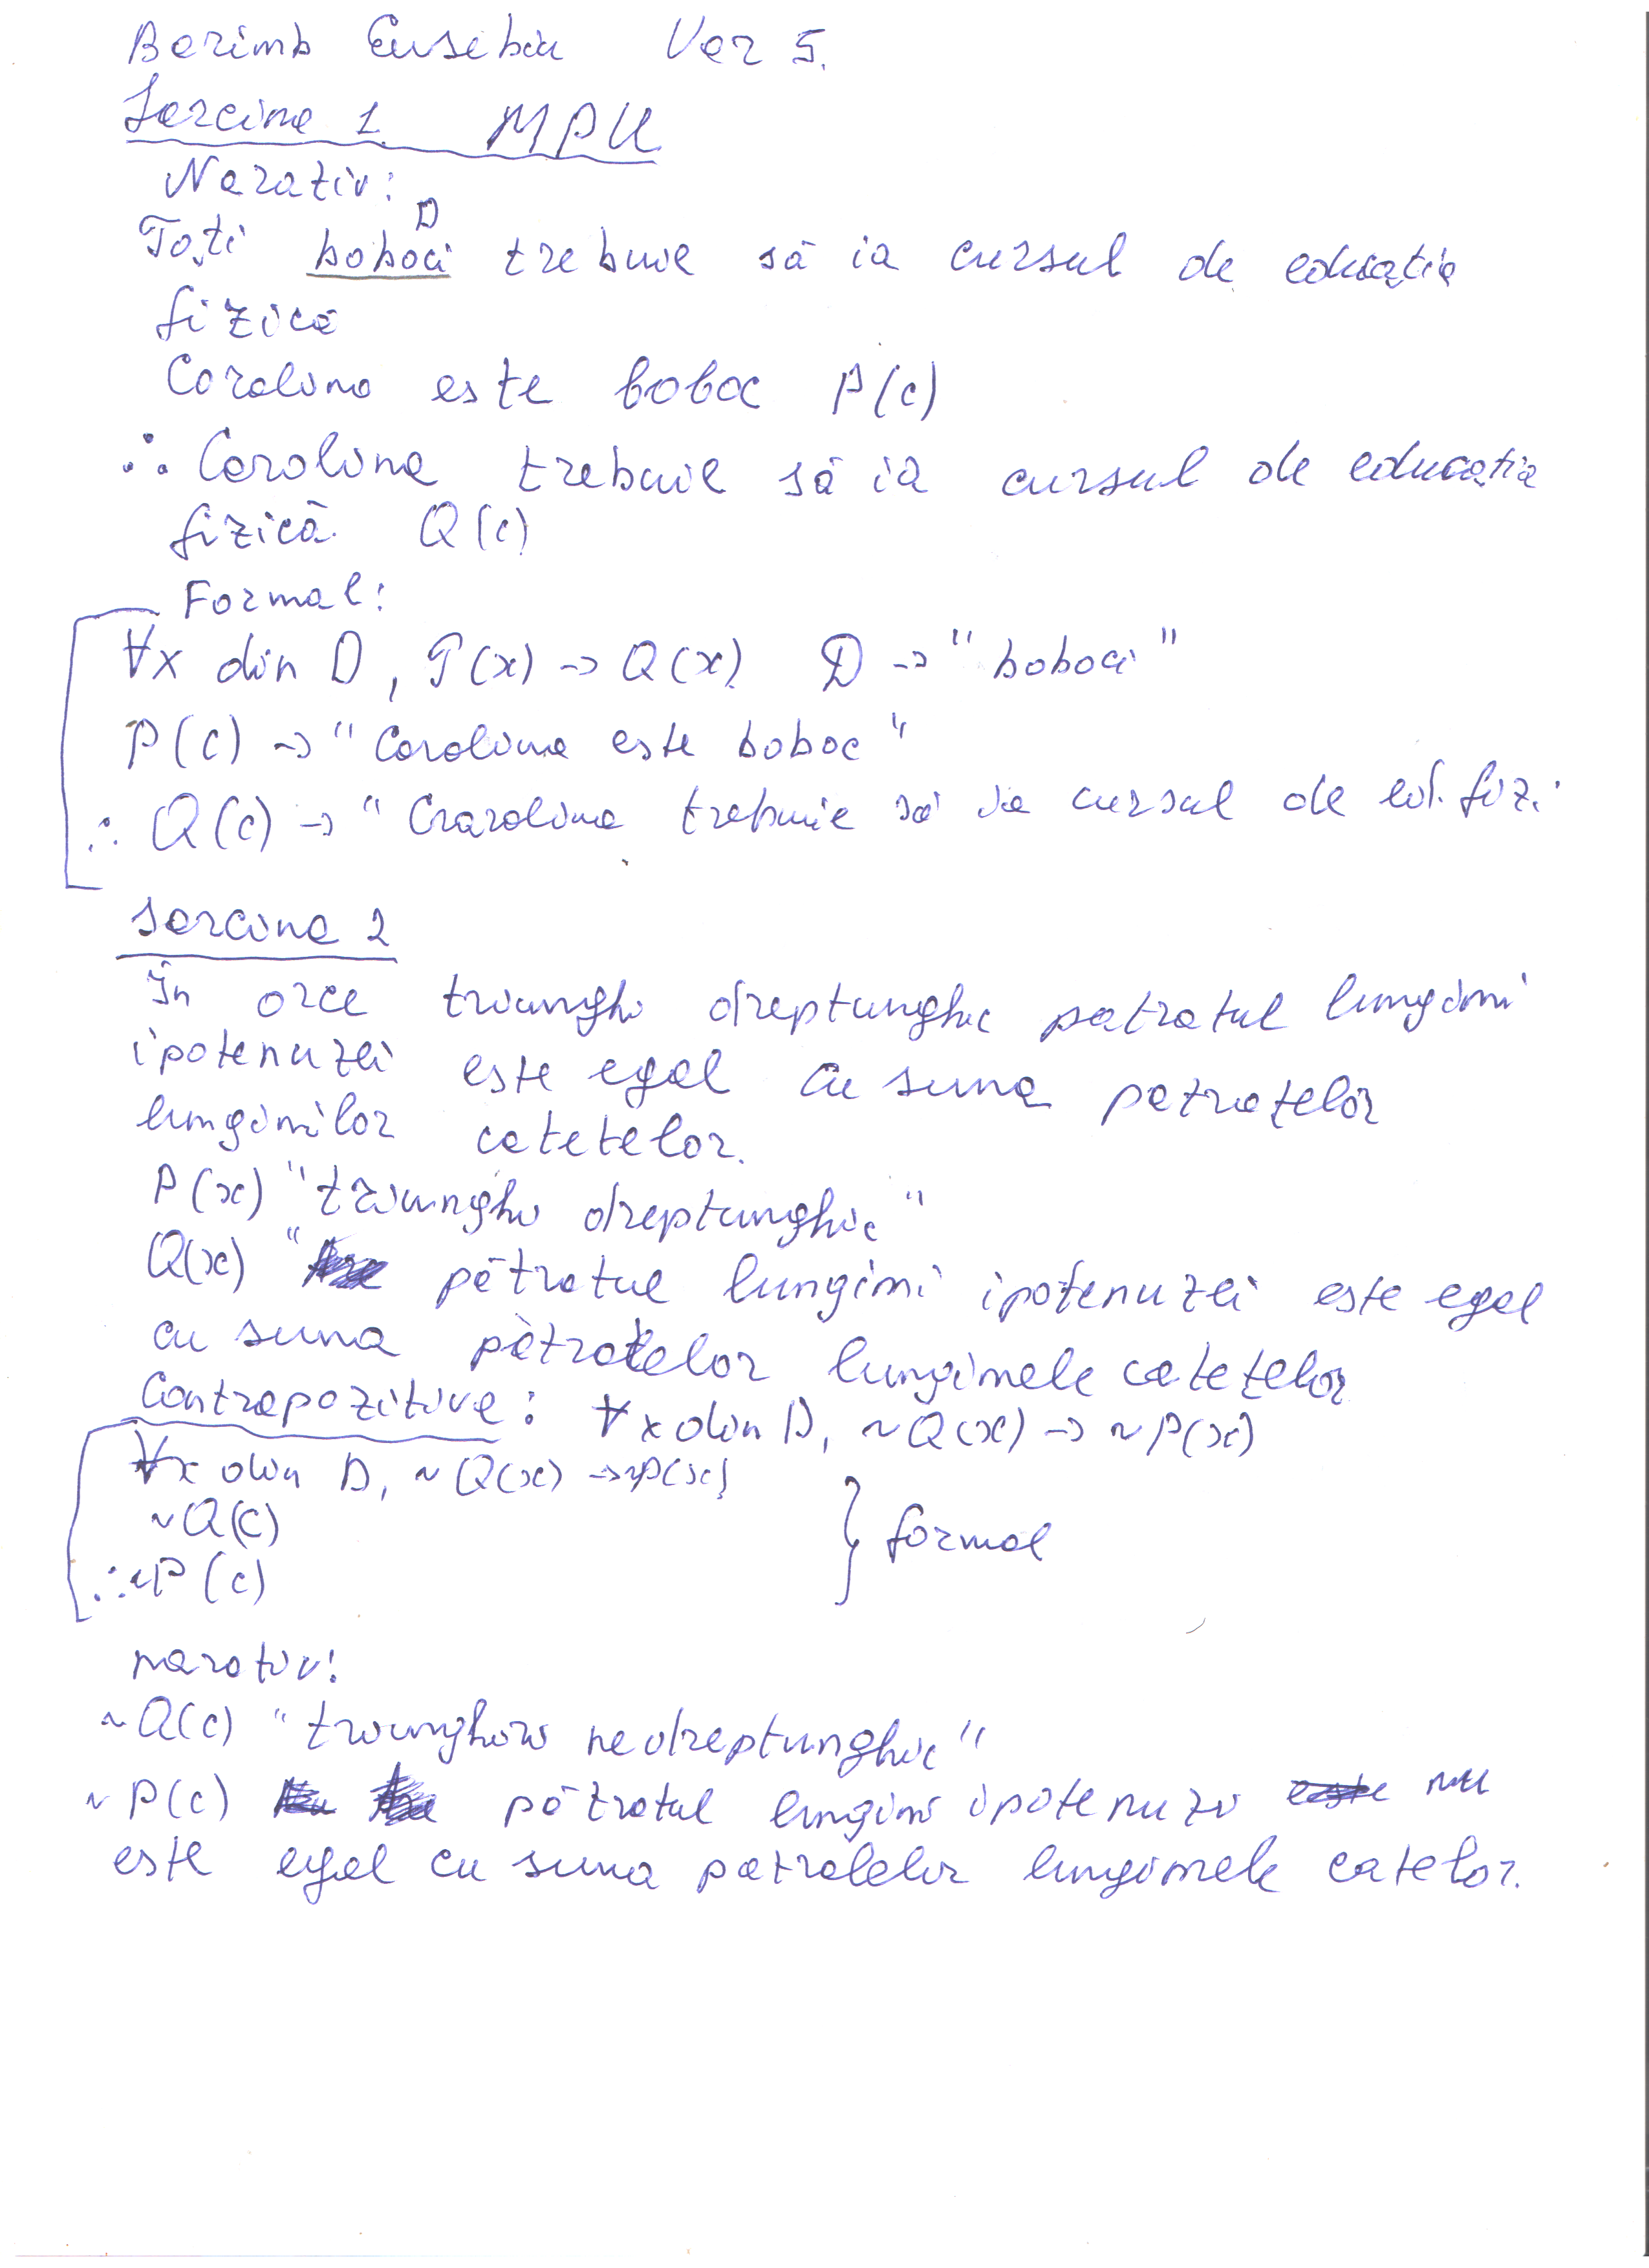 Berimb Eusebiu Var 5.
Sarcina 1 MPU
Narativ:
D
Toți boboci trebuie să ia cursul de educația
fizică
Carolina este boboc P(c)
∴ Carolina trebuie să ia cursul de educația
fizică. Q(c)
Formal:
∀x din D, P(x) -> Q(x). D -> "boboci"
P(c) -> "Carolina este boboc"
∴ Q(c) -> "Crarolina trebuie să ia cursul de ed. fizi.
Sarcina 2
În orce triunghi dreptunghic patratul lungimi
ipotenuzei este egal cu suma patraților
lungimilor catetelor.
P(x) "triunghi dreptunghic"
Q(x) " pătratul lungimi ipotenuzei este egal
cu suma pătratelor lungimele catețelor
Contrapozitiva: ∀x din D, ~Q(x) -> ~P(x)
∀x din D, ~Q(x) -> ~P(x)
~Q(c)
∴ ~P(c)
formal
narativ:
~Q(c) " nedreptunghic"
~P(c) pătratul lungimi ipotenuzi nu
este egal cu suma patratelor lungimele catelor.